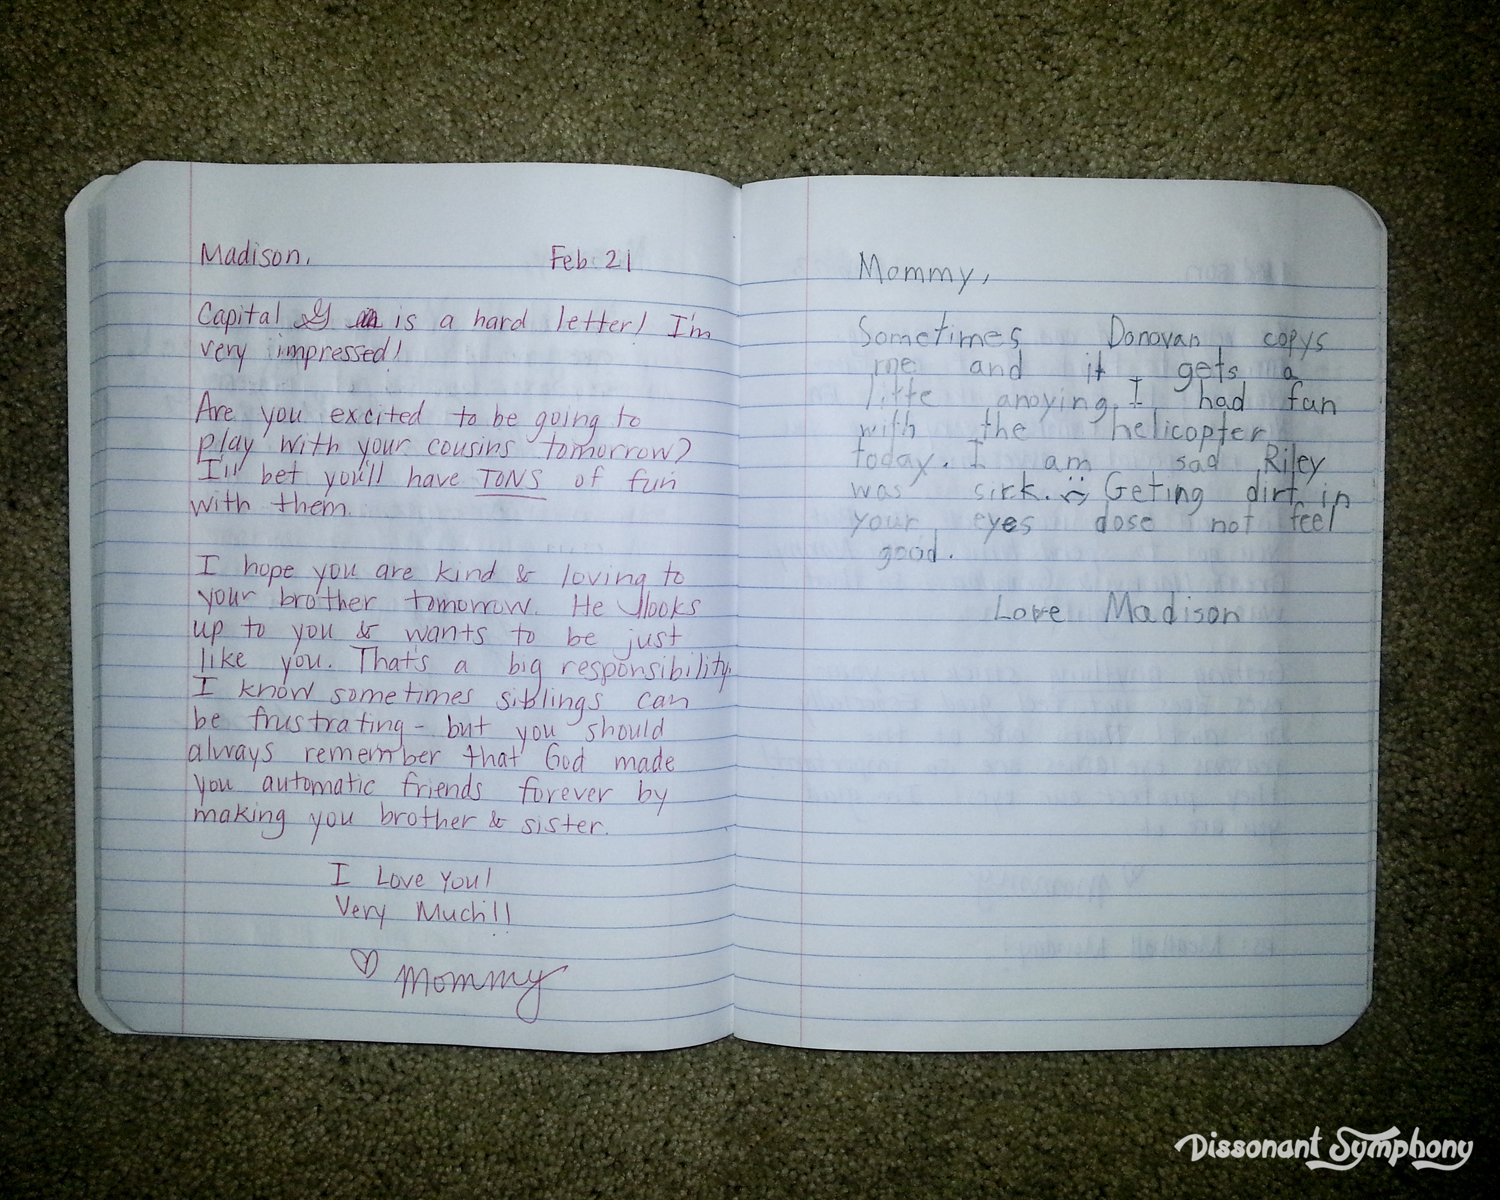 Madison, Feb 21
Capital G is a hard letter! I'm
very impressed!
Are you excited to be going to
play with your cousins tomorrow?
I'll bet you'll have TONS of fun
with them.
I hope you are kind & loving to
your brother tomorrow. He looks
up to you & wants to be just
like you. That's a big responsibility.
I know sometimes siblings can
be frustrating - but you should
always remember that God made
you automatic friends forever by
making you brother & sister.
I Love You!
Very Much!!
♡ Mommy
Mommy,
Sometimes Donovan copys
me and it gets a
litte anoying. I had fun
with the helicopter
today. I am sad Riley
was sick. :( Geting dirt in
your eyes dose not feel
good.
Love Madison
Dissonant Symphony